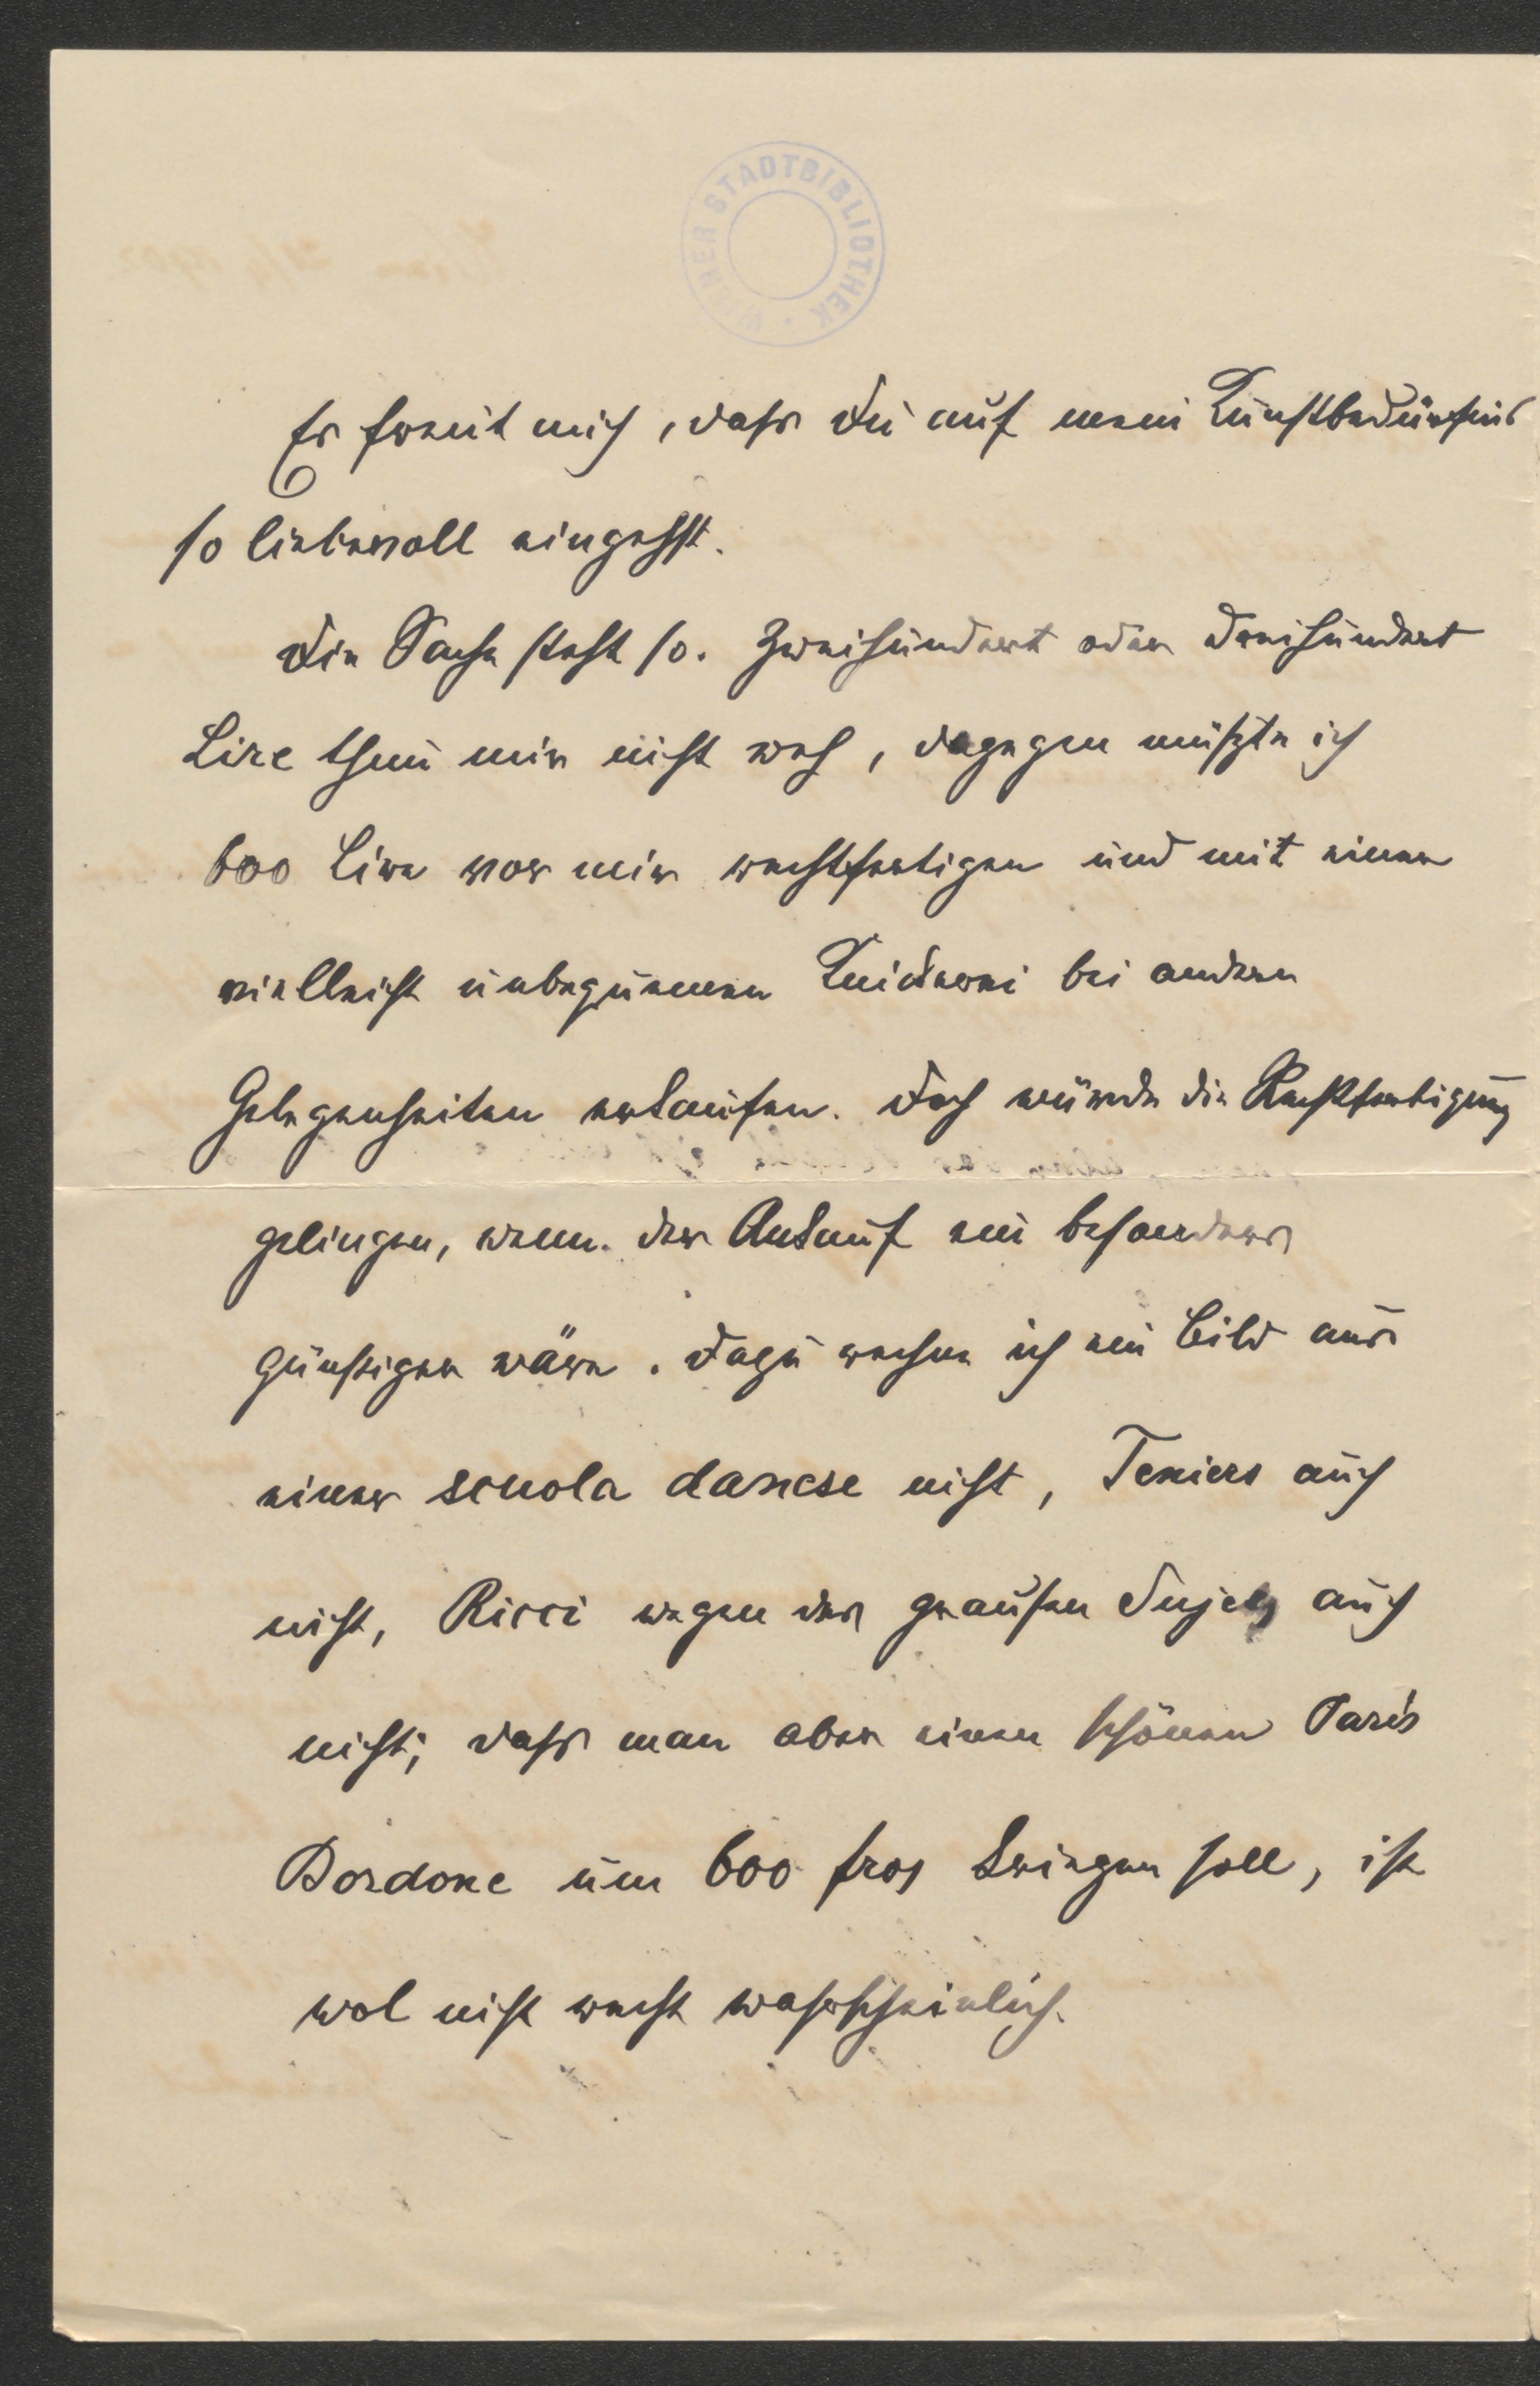 WIENER STADTBIBLIOTHEK
Es freut mich, dass Du auf mein Kunstbedürfnis
so liebevoll eingehst.
Die Sache steht so. Zweihundert oder dreihundert
Lire thun mir nicht weh, dagegen müßte ich
600 Lire vor mir rechtfertigen und mit einer
vielleicht unbequemen Knickerei bei andern
Gelegenheiten erkaufen. Doch würde die Rechtfertigung
gelingen, wenn der Ankauf ein besonders
günstiger wäre. Dazu rechne ich ein Bild aus
einer scuola danese nicht, Teniers auch
nicht, Ricci wegen des grausen Sujets auch
nicht; dass man aber einen schönen Paris
Bordone um 600 frcs kriegen soll, ist
wol nicht recht wahrscheinlich.